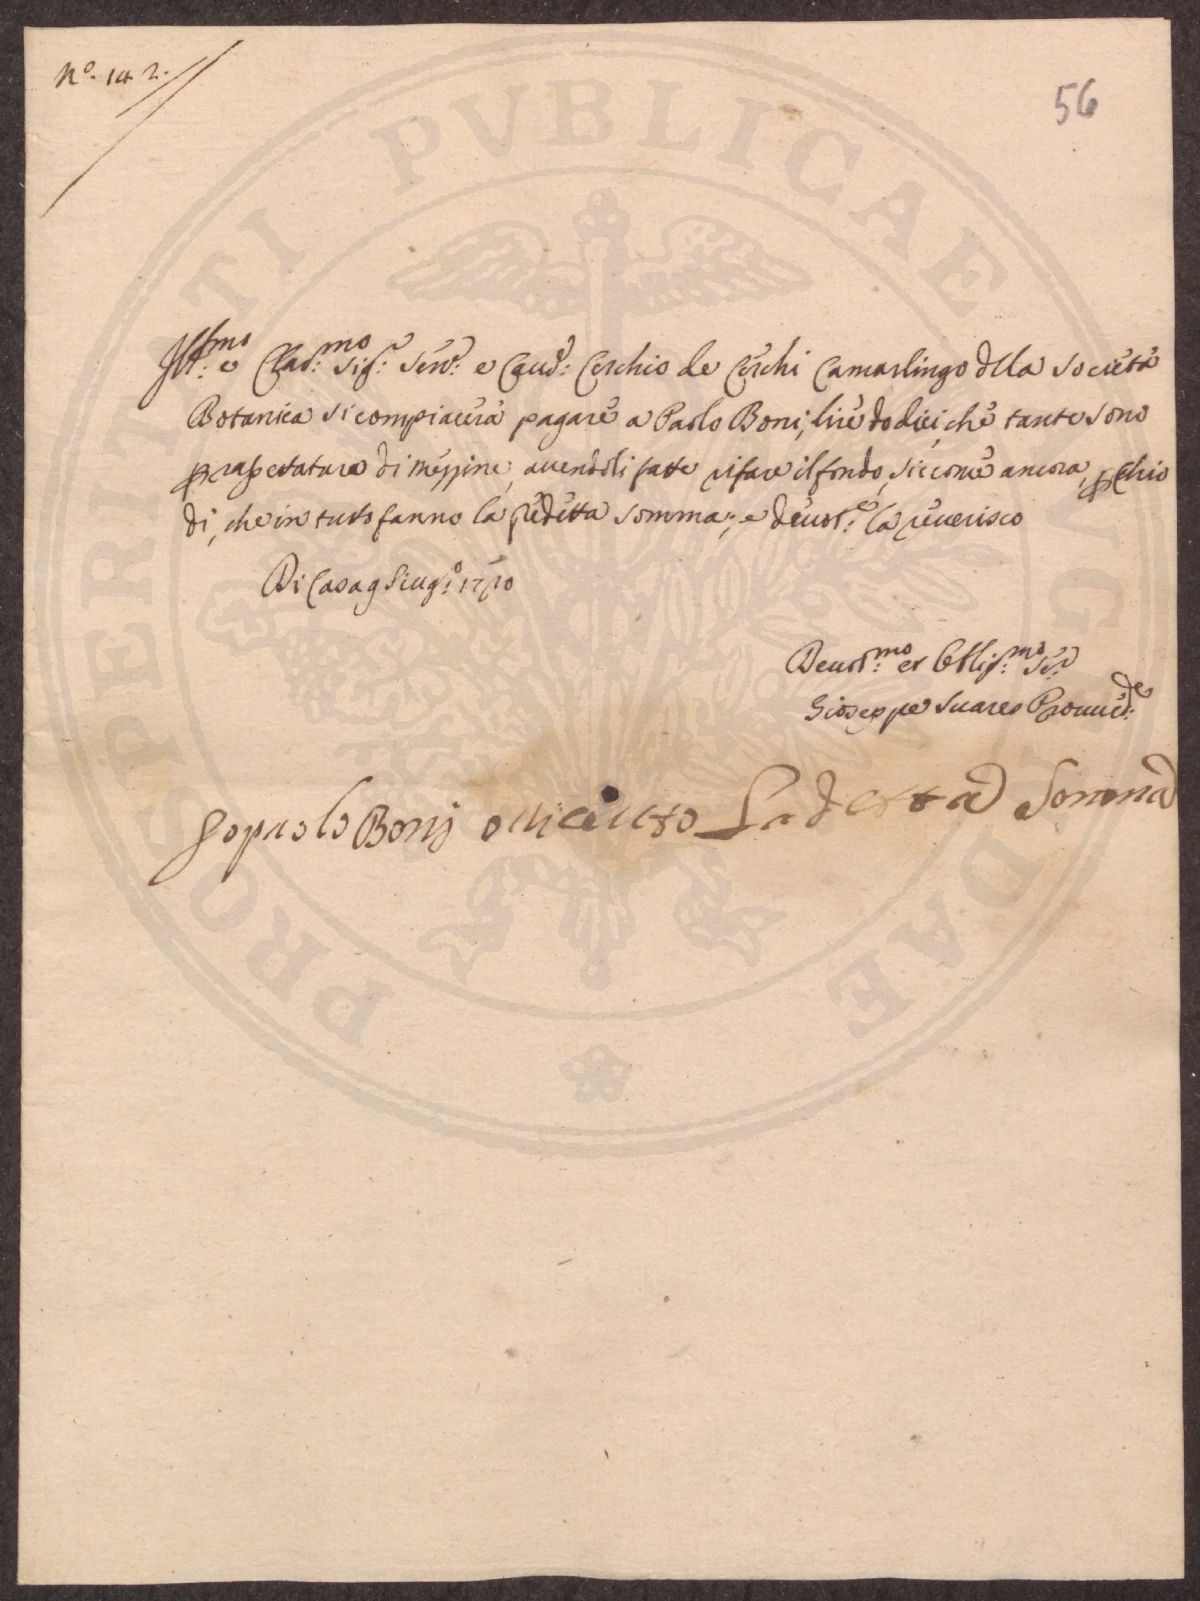 N.º 142.
56
Ill.mo e Clar.mo Sig.r Sen.r e Cau.r Cerchio de Cerchi Camarlingo della Società
Botanica si compiacerà pagare a Paolo Boni, lire dodici, che tante sono
per rassettatura di mezzine, avendoli fatte rifare il fondo, siccome ancora, per chio
di, che in tutto fanno la predetta somma; e deuot.e la reuerisco
Di Casa 9 Giug.o 1710
Deuot.mo et Obblig.mo Se.r
Gioseppe Suares Proued.re
Io paolo Bonj o riceuto La detta Somma
PROSPERITATI PVBLICAE AVGENDAE